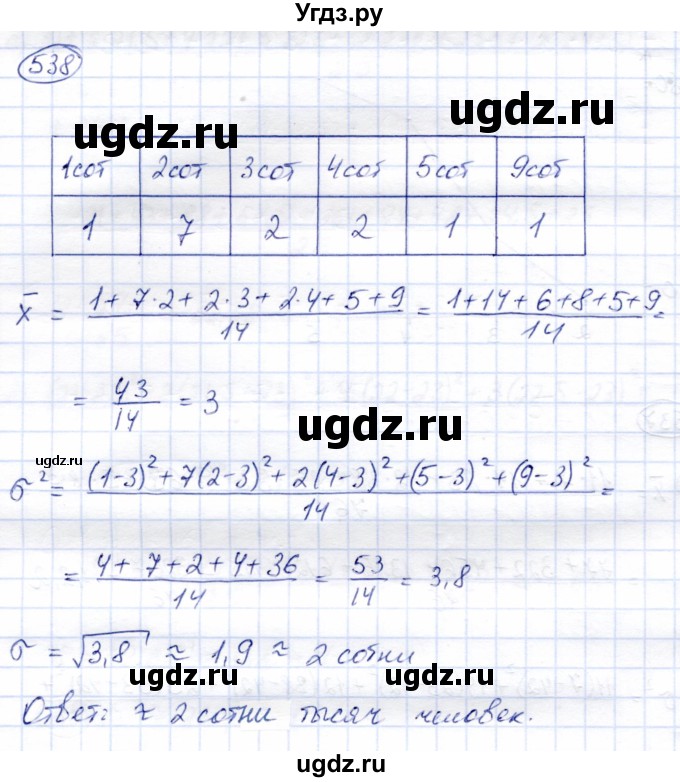 Угдз.ру
538
ugdz.ru ugdz.ru
1сот 2сот 3сот 4сот 5сот 9сот
1 7 2 2 1 1
ugdz.ru
x̄ = (1 + 7·2 + 2·3 + 2·4 + 5 + 9)/14 = (1+14+6+8+5+9)/14 =
ugdz.ru
= 43/14 = 3
ugdz.ru
ugdz.ru
σ² = ((1-3)² + 7(2-3)² + 2(4-3)² + (5-3)² + (9-3)²)/14 =
ugdz.ru
= (4 + 7 + 2 + 4 + 36)/14 = 53/14 = 3,8
ugdz.ru
σ = √3,8 ≈ 1,9 ≈ 2 сотни
ugdz.ru
Ответ: ≈ 2 сотни тысяч человек.
ugdz.ru